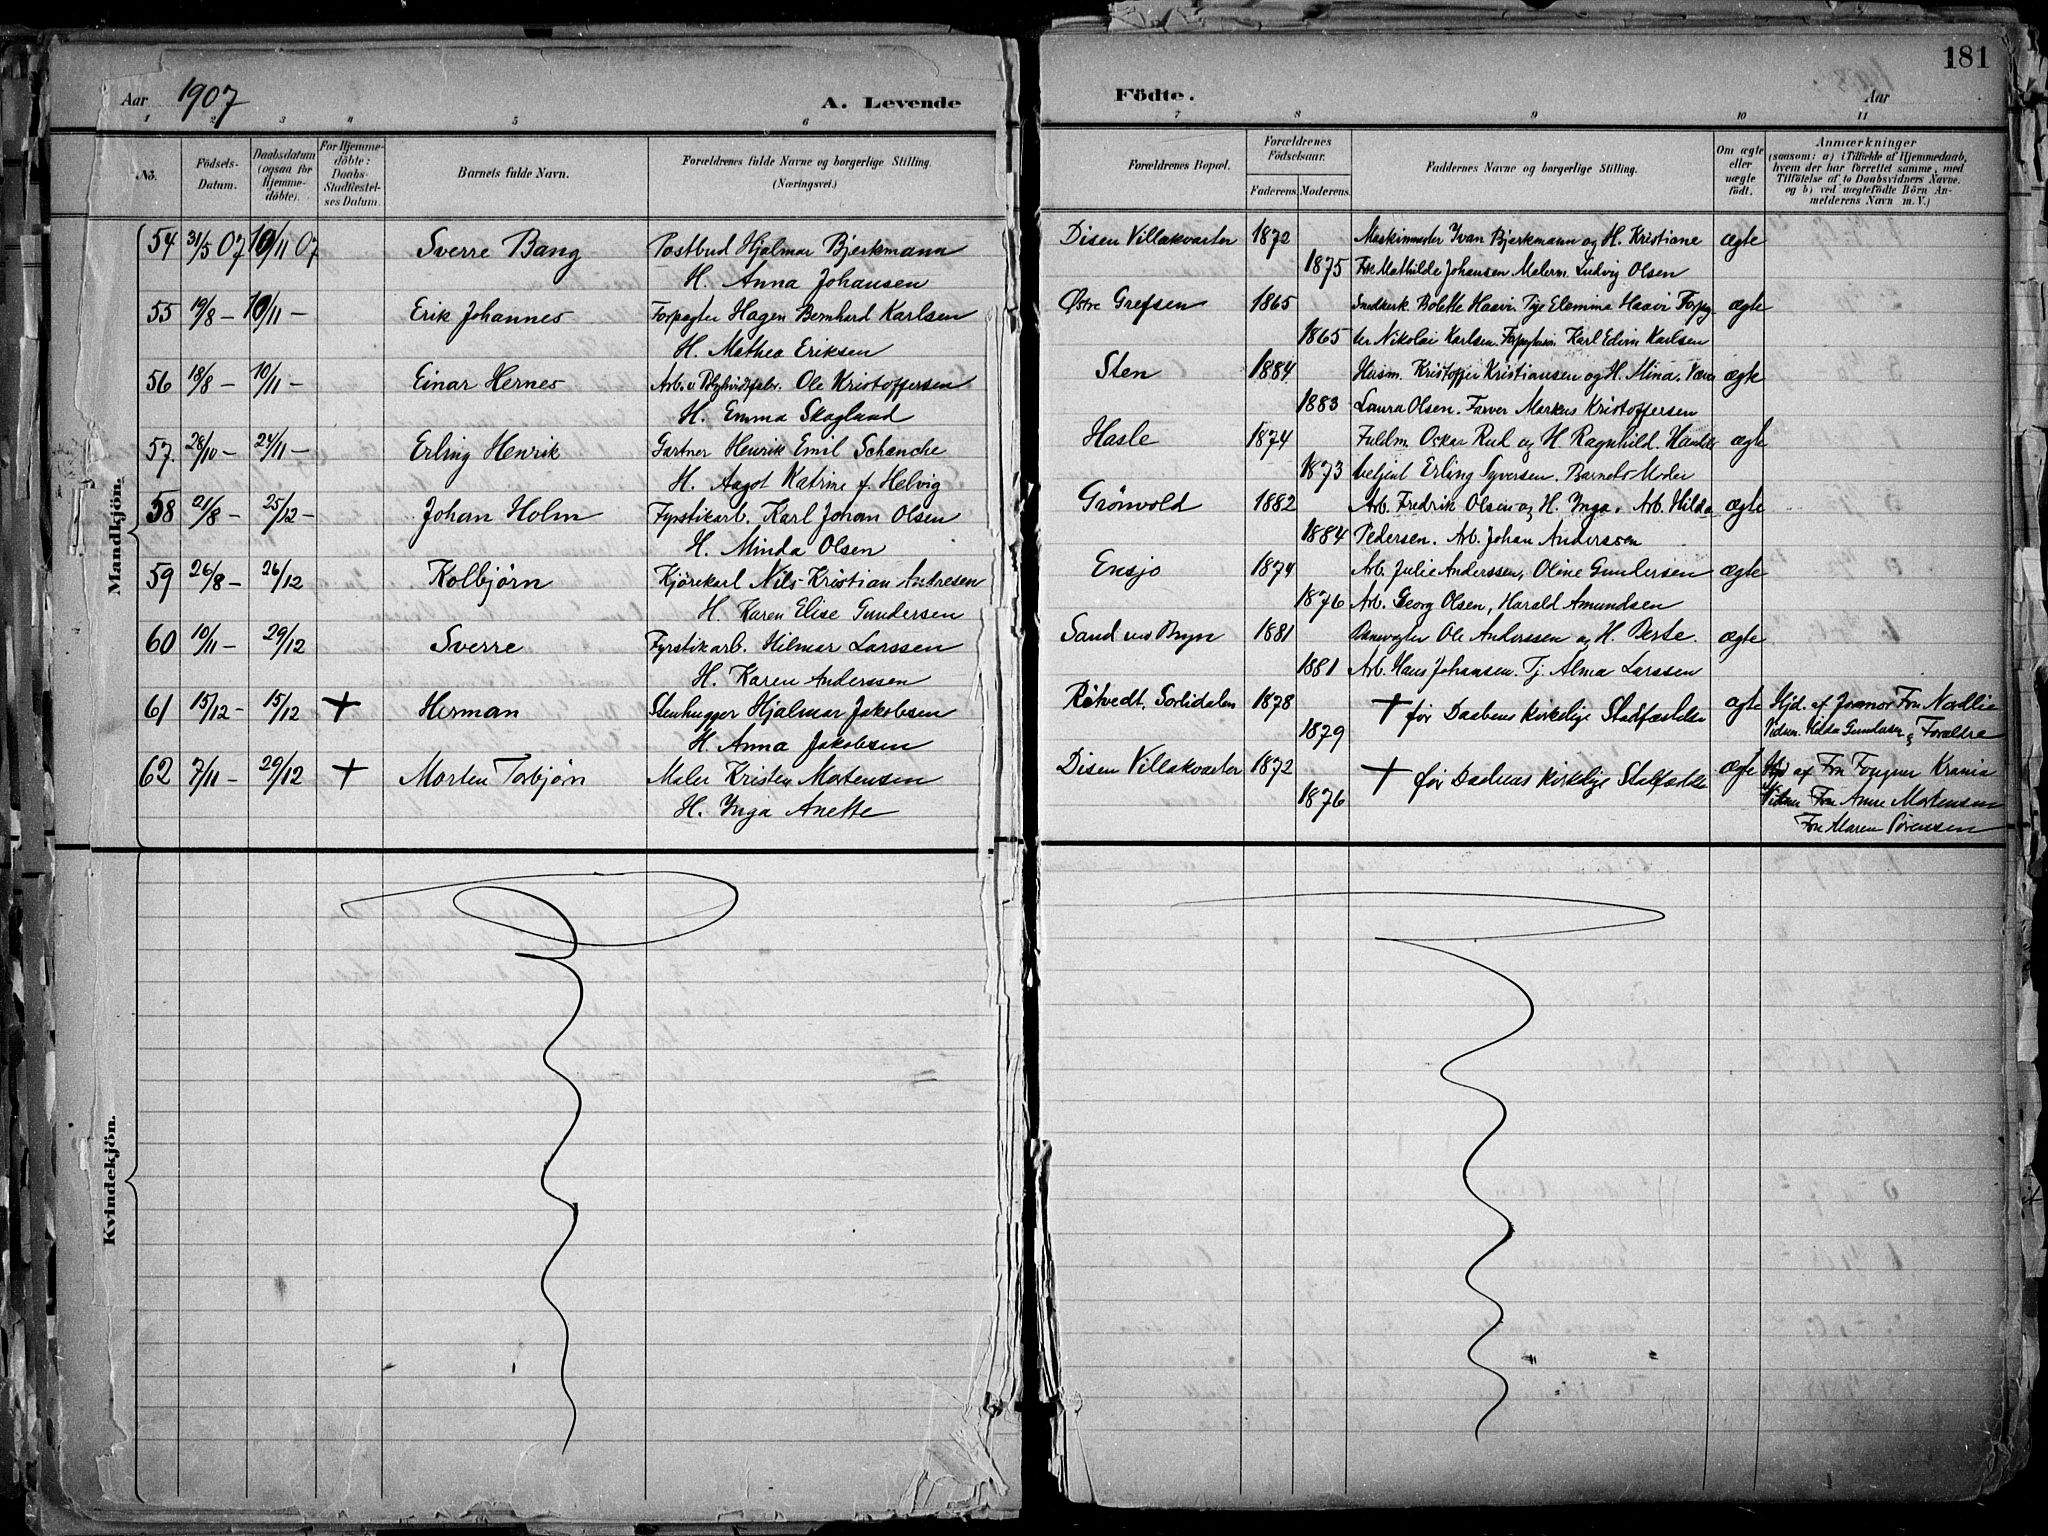 181
Aar 1907
A. Levende
Födte.
Aar
1 2 3 4 5 6 7 8 9 10 11
No.
Födsels-
Datum.
Daabsdatum
(ogsaa for
Hjemme-
döbte).
For Hjemme-
döbte:
Daabs-
Stadfæstel-
ses Datum.
Barnets fulde Navn.
Forældrenes fulde Navne og borgerlige Stilling.
(Næringsvei.)
Forældrenes Bopæl.
Forældrenes
Födselsaar.
Faderens. Moderens.
Faddernes Navne og borgerlige Stilling.
Om ægte
eller
uægte
födt.
Anmærkninger
(saasom: a) i Tilfælde af Hjemmedaab,
hvem der har forrettet samme, med
Tilföielse af to Daabsvidners Navne.
og b) ved uægtefödte Börn An-
melderens Navn m. V.)
Mandkjön.
54 31/5 07 10/11 07 Sverre Bang Postbud Hjalmar Bjerkmann Disen Villakvarter 1872 Maskinmester Ivan Bjerkmann og H. Kristiane ægte
H. Anna Johansen 1875 Frk Mathilde Johansen. Malerm. Ludvig Olsen
55 19/8 – 10/11 – Erik Johannes Forpagter Hagen Bernhard Karlsen Østre Grefsen 1865 Snedkerk. Bolette Haavi. Pige Elemina Haavi Forpag- ægte
H. Mathea Eriksen 1865 ter Nikolai Karlsen. Karl Edvin Karlsen
56 18/8 – 10/11 – Einar Hernes Arb. v. Ole Kristoffersen Sten 1884 Husm. Kristoffer Kristiansen og H. Mina. ægte
H. Emma Skogland 1883 Laura Olsen. Farver Markus Kristoffersen
57. 28/10 – 24/11 – Erling Henrik Gartner Henrik Emil Schanche Hasle 1874 Fuldm Oskar Rud og H. Ragnhild. Handels- ægte
H. Aagot Katrine f. Helvig 1873 betjent Erling Syversen. Barnets Moder
58 21/8 – 25/12 – Johan Holm Fyrstikarb. Karl Johan Olsen Grönvold 1882 Arb. Fredrik Olsen og H. Inga. Arb. Hilda ægte
H. Minda Olsen 1884 Pedersen. Arb. Johan Anderssen
59 26/8 – 26/12 Kolbjörn Kjörekarl Nils Kristian Andresen Ensjo 1874 Arb. Julie Anderssen, Oline Gundersen ægte
H. Karen Elise Gundersen 1876 Arb. Georg Olsen, Harald Amundsen
60 10/11 – 29/12 Sverre Fyrstikarb. Hilmar Larssen Sand ved Bryn 1881 Banevogter Ole Anderssen og H. Berte. ægte
H. Karen Anderssen 1881 Arb. Hans Johansen. Tj. Alma Larssen
61 15/12 – 15/12 + Herman Stenhugger Hjalmar Jakobsen Sorlidalen 1878 + før Daabens kirkelige Stadfæstelse ægte Hjd. af Jormor Fru Nordlie
H. Anna Jakobsen 1879 Vidner. Hilda Gundersen & Forældre
62 7/11 – 29/12 + Morten Torbjörn Maler Kristen Mortensen Disen Villakvarter 1872 + før Daabens kirkelige Stadfæstelse ægte Hjd af Fru Fougner Krania
H. Inga Anette 1876 Vidner Fru Anne Mortensen
Fru Maren Sörenssen
Kvindekjön.